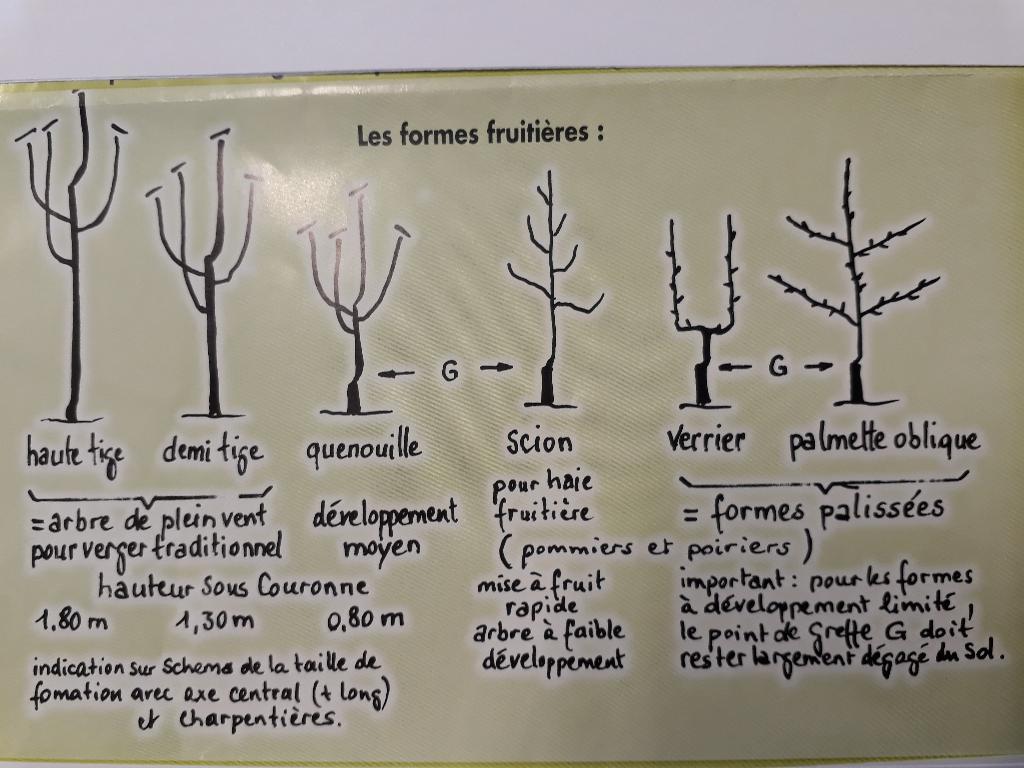 Les formes fruitières :
← G →
← G →
haute tige
demi tige
quenouille
scion
verrier
palmette oblique
= arbre de plein vent
pour verger traditionnel
développement
moyen
pour haie
fruitière
= formes palissées
( pommiers et poiriers )
hauteur sous couronne
1.80 m
1,30 m
0,80 m
mise à fruit
rapide
arbre à faible
développement
important : pour les formes
à développement limité,
le point de greffe G doit
rester largement dégagé du sol.
indication sur schema de la taille de
fomation avec axe central (+ long)
et charpentières.